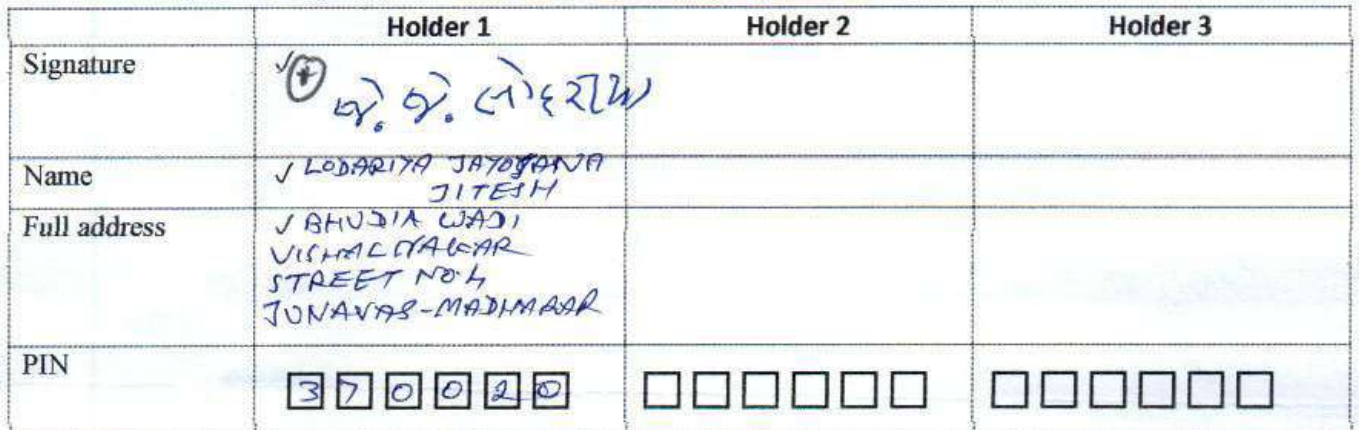 Holder 1 Holder 2 Holder 3
Signature જે. જે. લોદરીયા
Name LODARIYA JAYOTSANA
JITESH
Full address BHUDIA WADI
VISHALNAGAR
STREET NO.4
JUNAVAS-MADHAPAR
PIN 370020